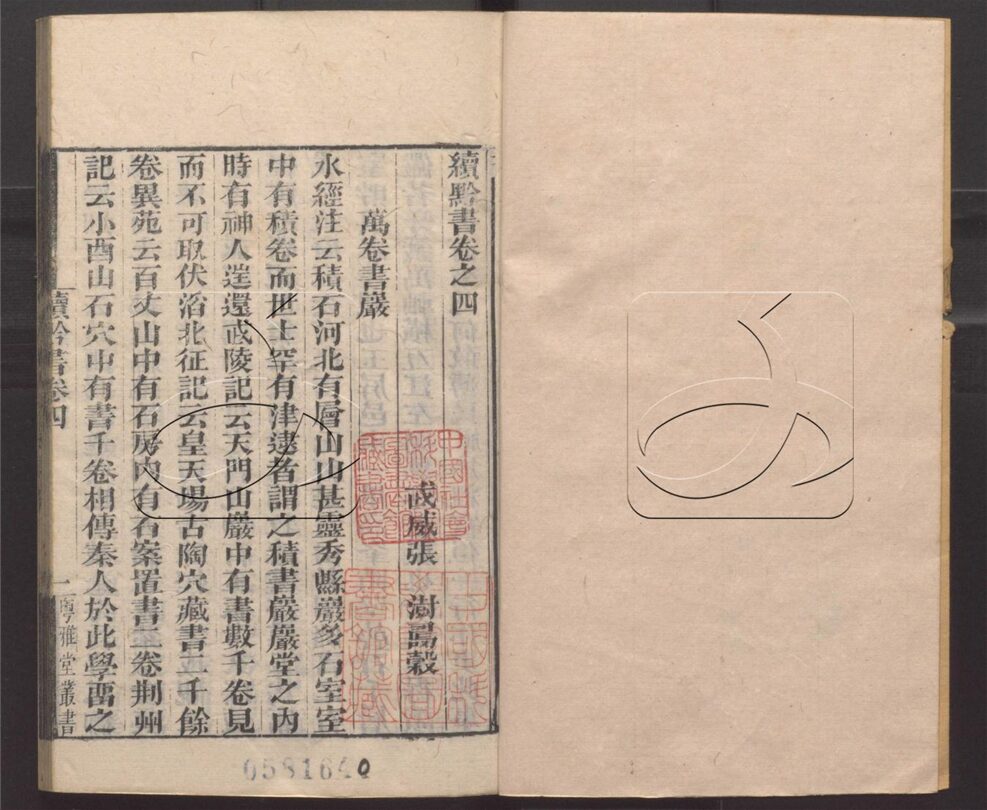 續黔書卷之四
武威張 澍 介侯著
萬卷書巖
水經注云積石河北有層山山甚靈秀縣巖多石室室
中有積卷而世士罕有津逮者謂之積書巖巖堂之内
時有神人
還武陵記云天門山巖中有書數千卷見
而不可取伏滔北征記云皇天塢古陶穴藏書二千餘
卷異苑云百丈山中有石房内有石案置書二卷荆州
記云小酉山石穴中有書千卷相傳秦人於此學畱之
續黔書卷四
一
粤雅堂叢書
中國社會
0581640